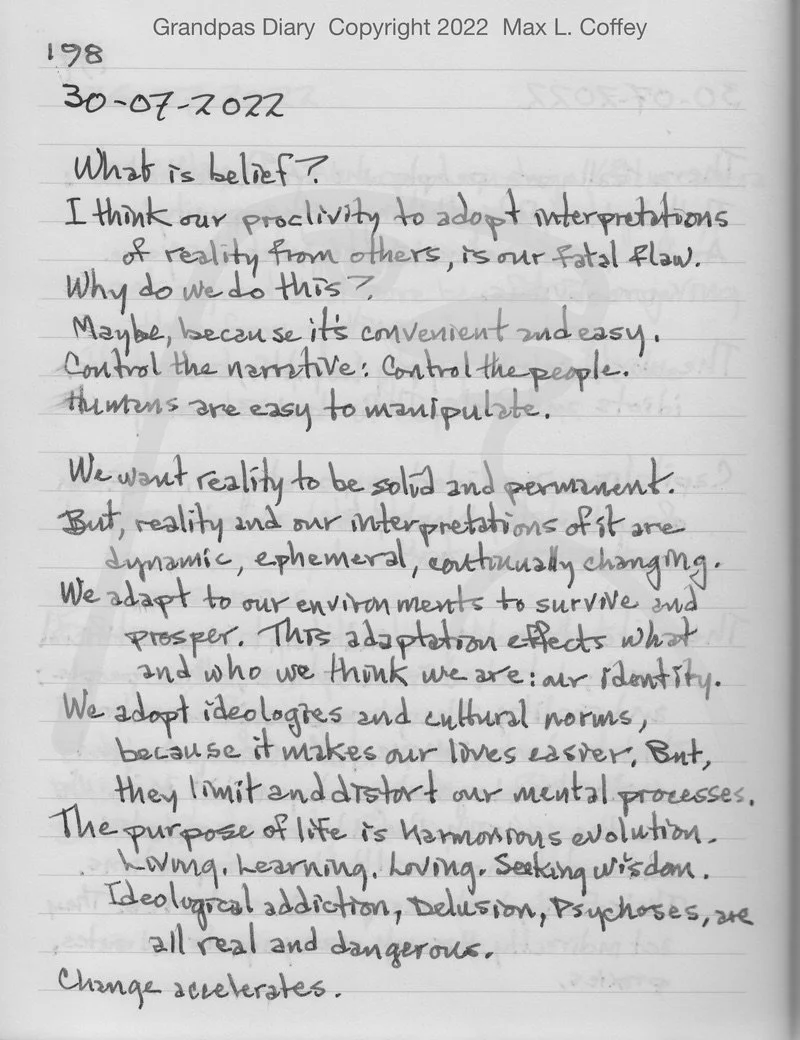 Grandpas Diary Copyright 2022 Max L. Coffey
198
30-07-2022
What is belief?
I think our proclivity to adopt interpretations
of reality from others, is our fatal flaw.
Why do we do this?
Maybe, because it's convenient and easy.
Control the narrative: Control the people.
Humans are easy to manipulate.
We want reality to be solid and permanent.
But, reality and our interpretations of it are
dynamic, ephemeral, continually changing.
We adapt to our environments to survive and
prosper. This adaptation effects what
and who we think we are: our identity.
We adopt ideologies and cultural norms,
because it makes our lives easier. But,
they limit and distort our mental processes.
The purpose of life is harmonious evolution.
Living. Learning. Loving. Seeking wisdom.
Ideological addiction, Delusion, Psychoses, are
all real and dangerous.
Change accelerates.